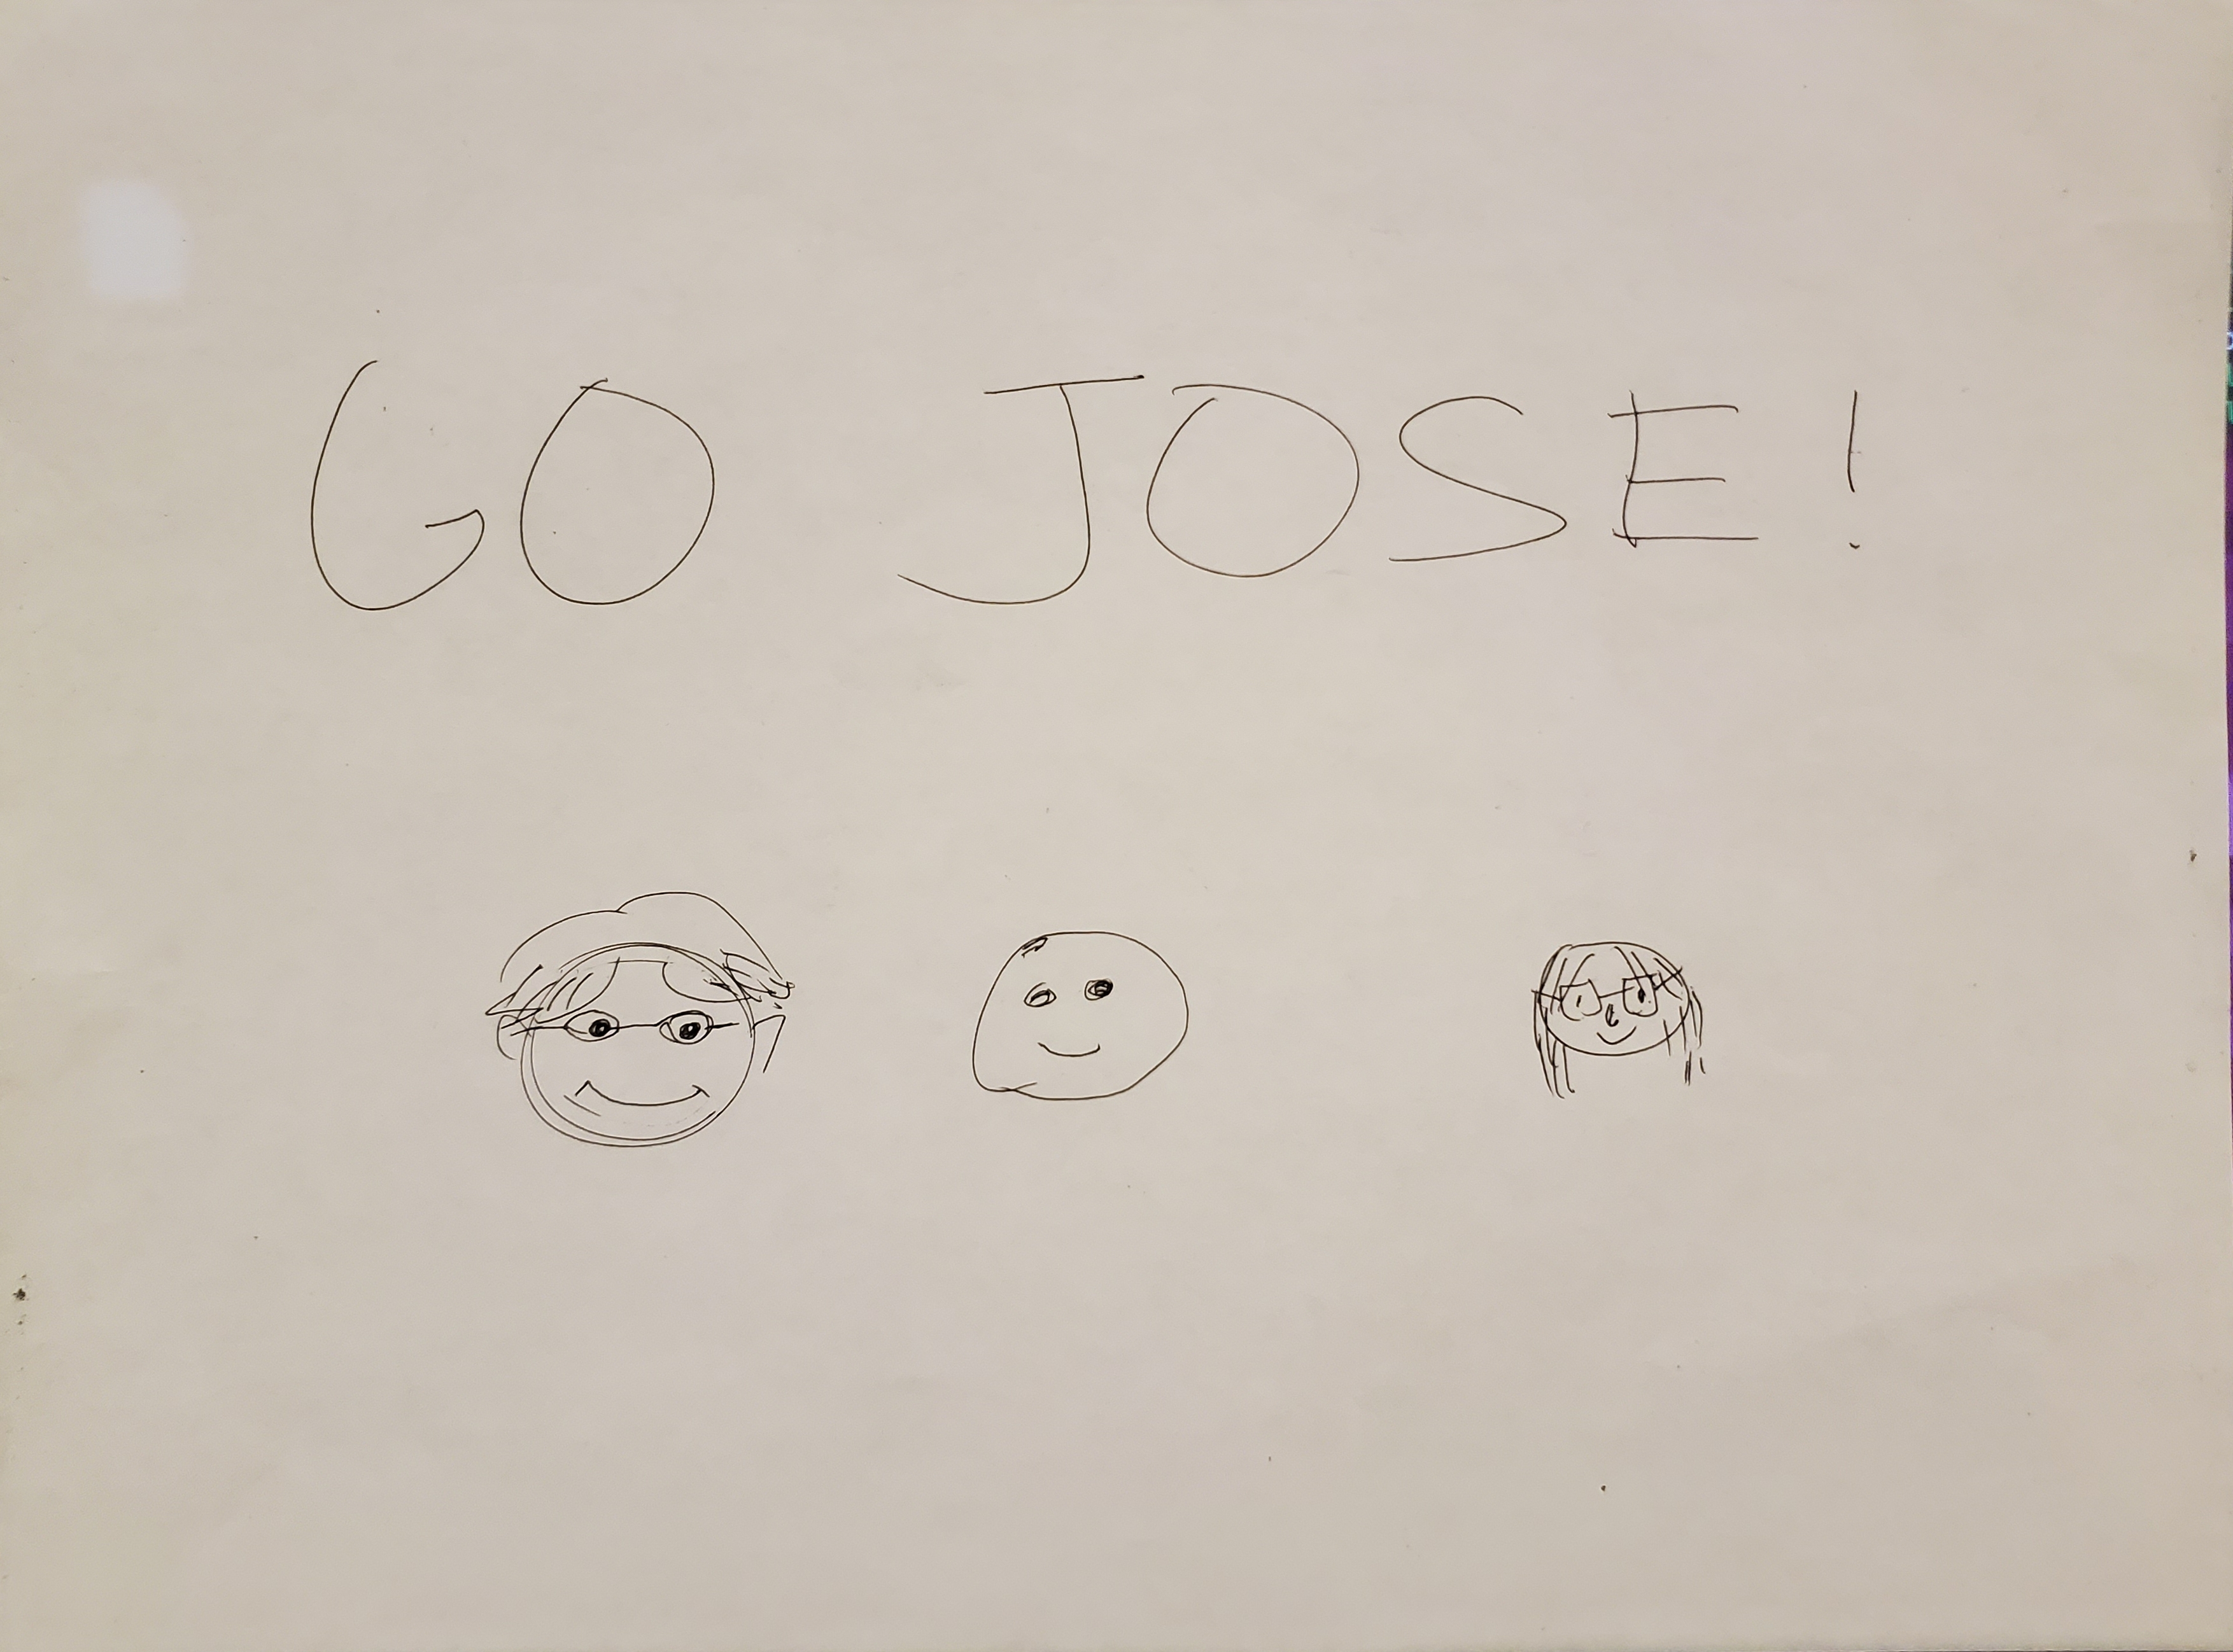 GO JOSE!